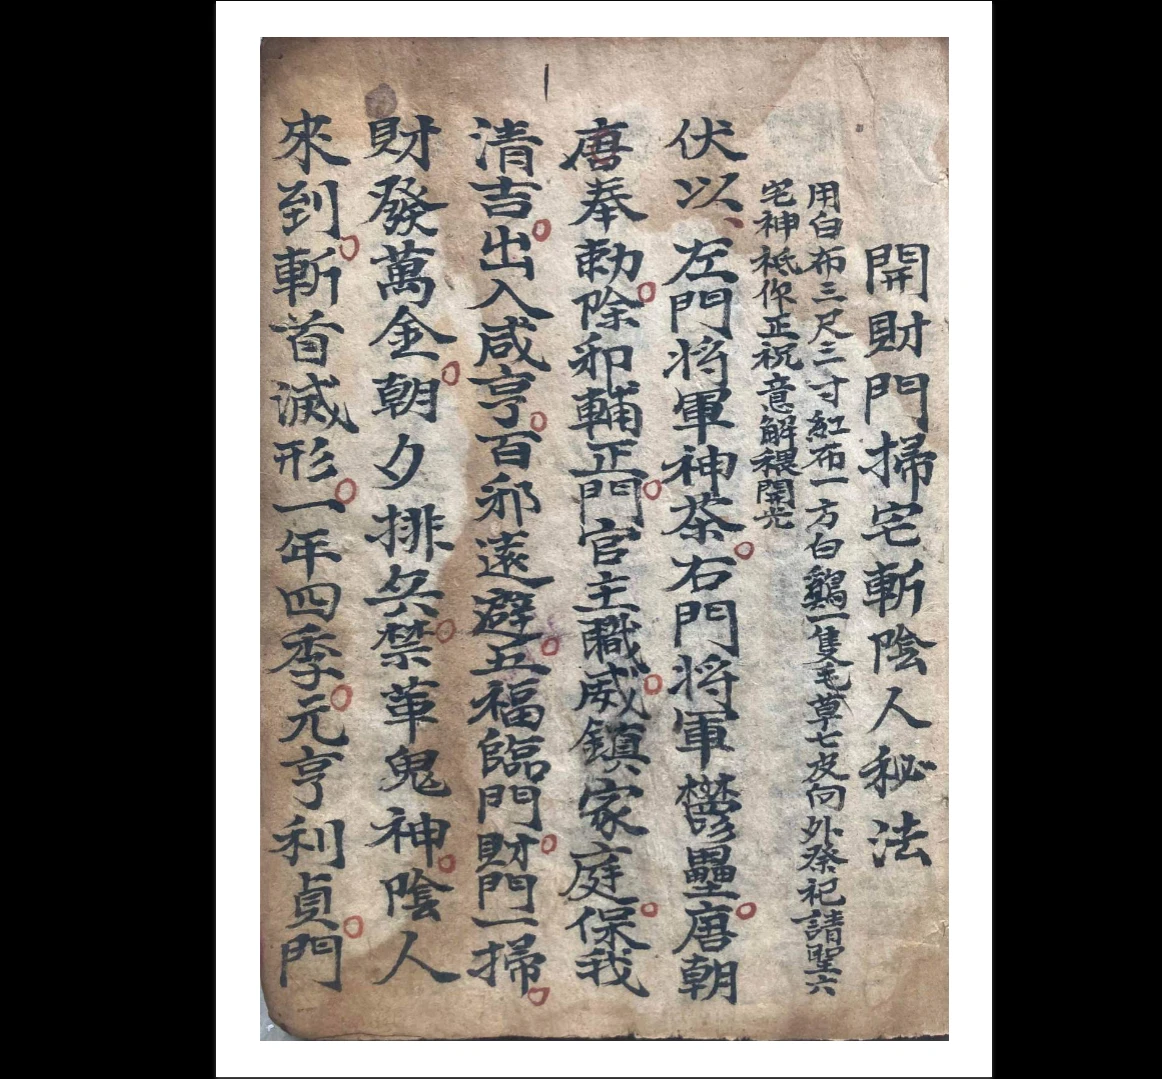 開財門掃宅斬陰人秘法
用白布三尺三寸紅布一方白鷄一隻毛草七皮向外祭祀請聖六
宅神祇你正祝意解穩開光
伏以左門将軍神茶右門将軍鬱壘唐朝
唐奉勅除邪輔正門官主職威鎮家庭保我
清吉出入咸亨百邪遠避五福臨門財門一掃
財發萬金朝夕排兵禁革鬼神陰人
來到斬首滅形一年四季元亨利貞門